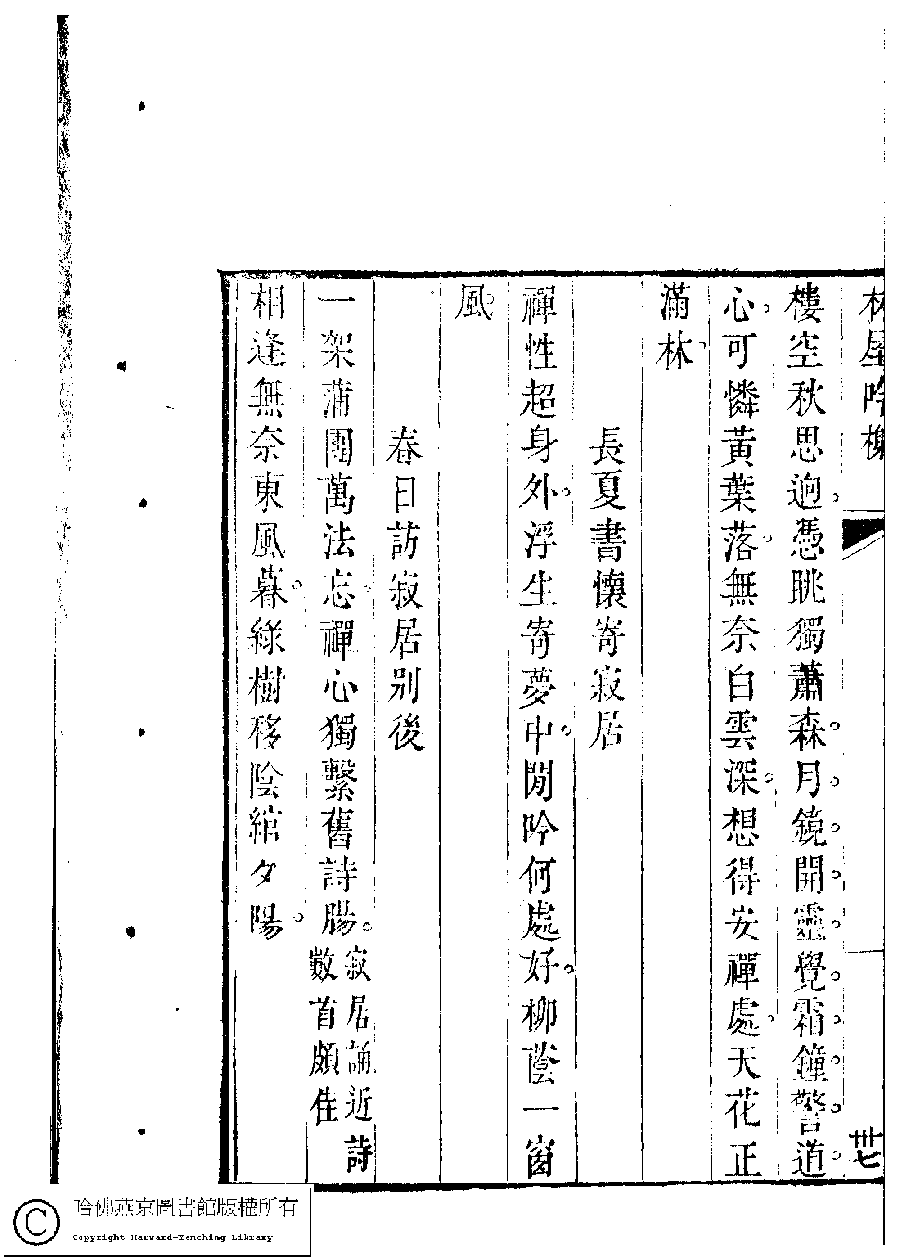 林屋吟榭
卅七
樓空秋思逈憑眺獨蕭森月鏡開靈覺霜鐘警道
心可憐黃葉落無奈白雲深想得安禪處天花正
滿林
長夏書懷寄寂居
禪性超身外浮生寄夢中閒吟何處好柳蔭一窗
風
春日訪寂居別後
一架蒲團萬法忘禪心獨繫舊詩腸寂居誦近詩
數首頗佳
相逢無奈東風暮綠樹移陰綰夕陽
哈佛燕京圖書館版權所有
Copyright Harvard-Yenching Library